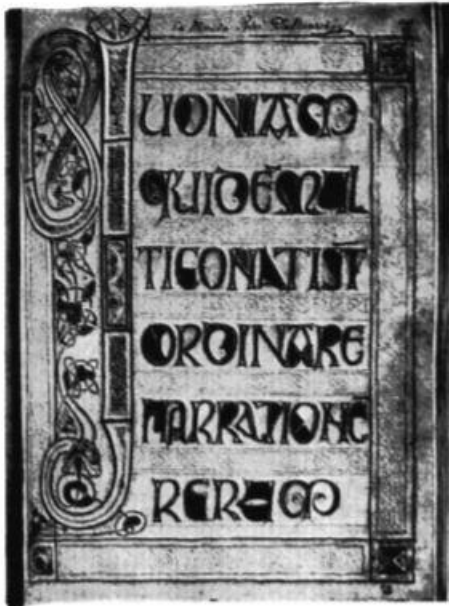 QUONIAM
QUIDEMUL
TICONATIST
ORDINARE
NARRATIONE
RERUM